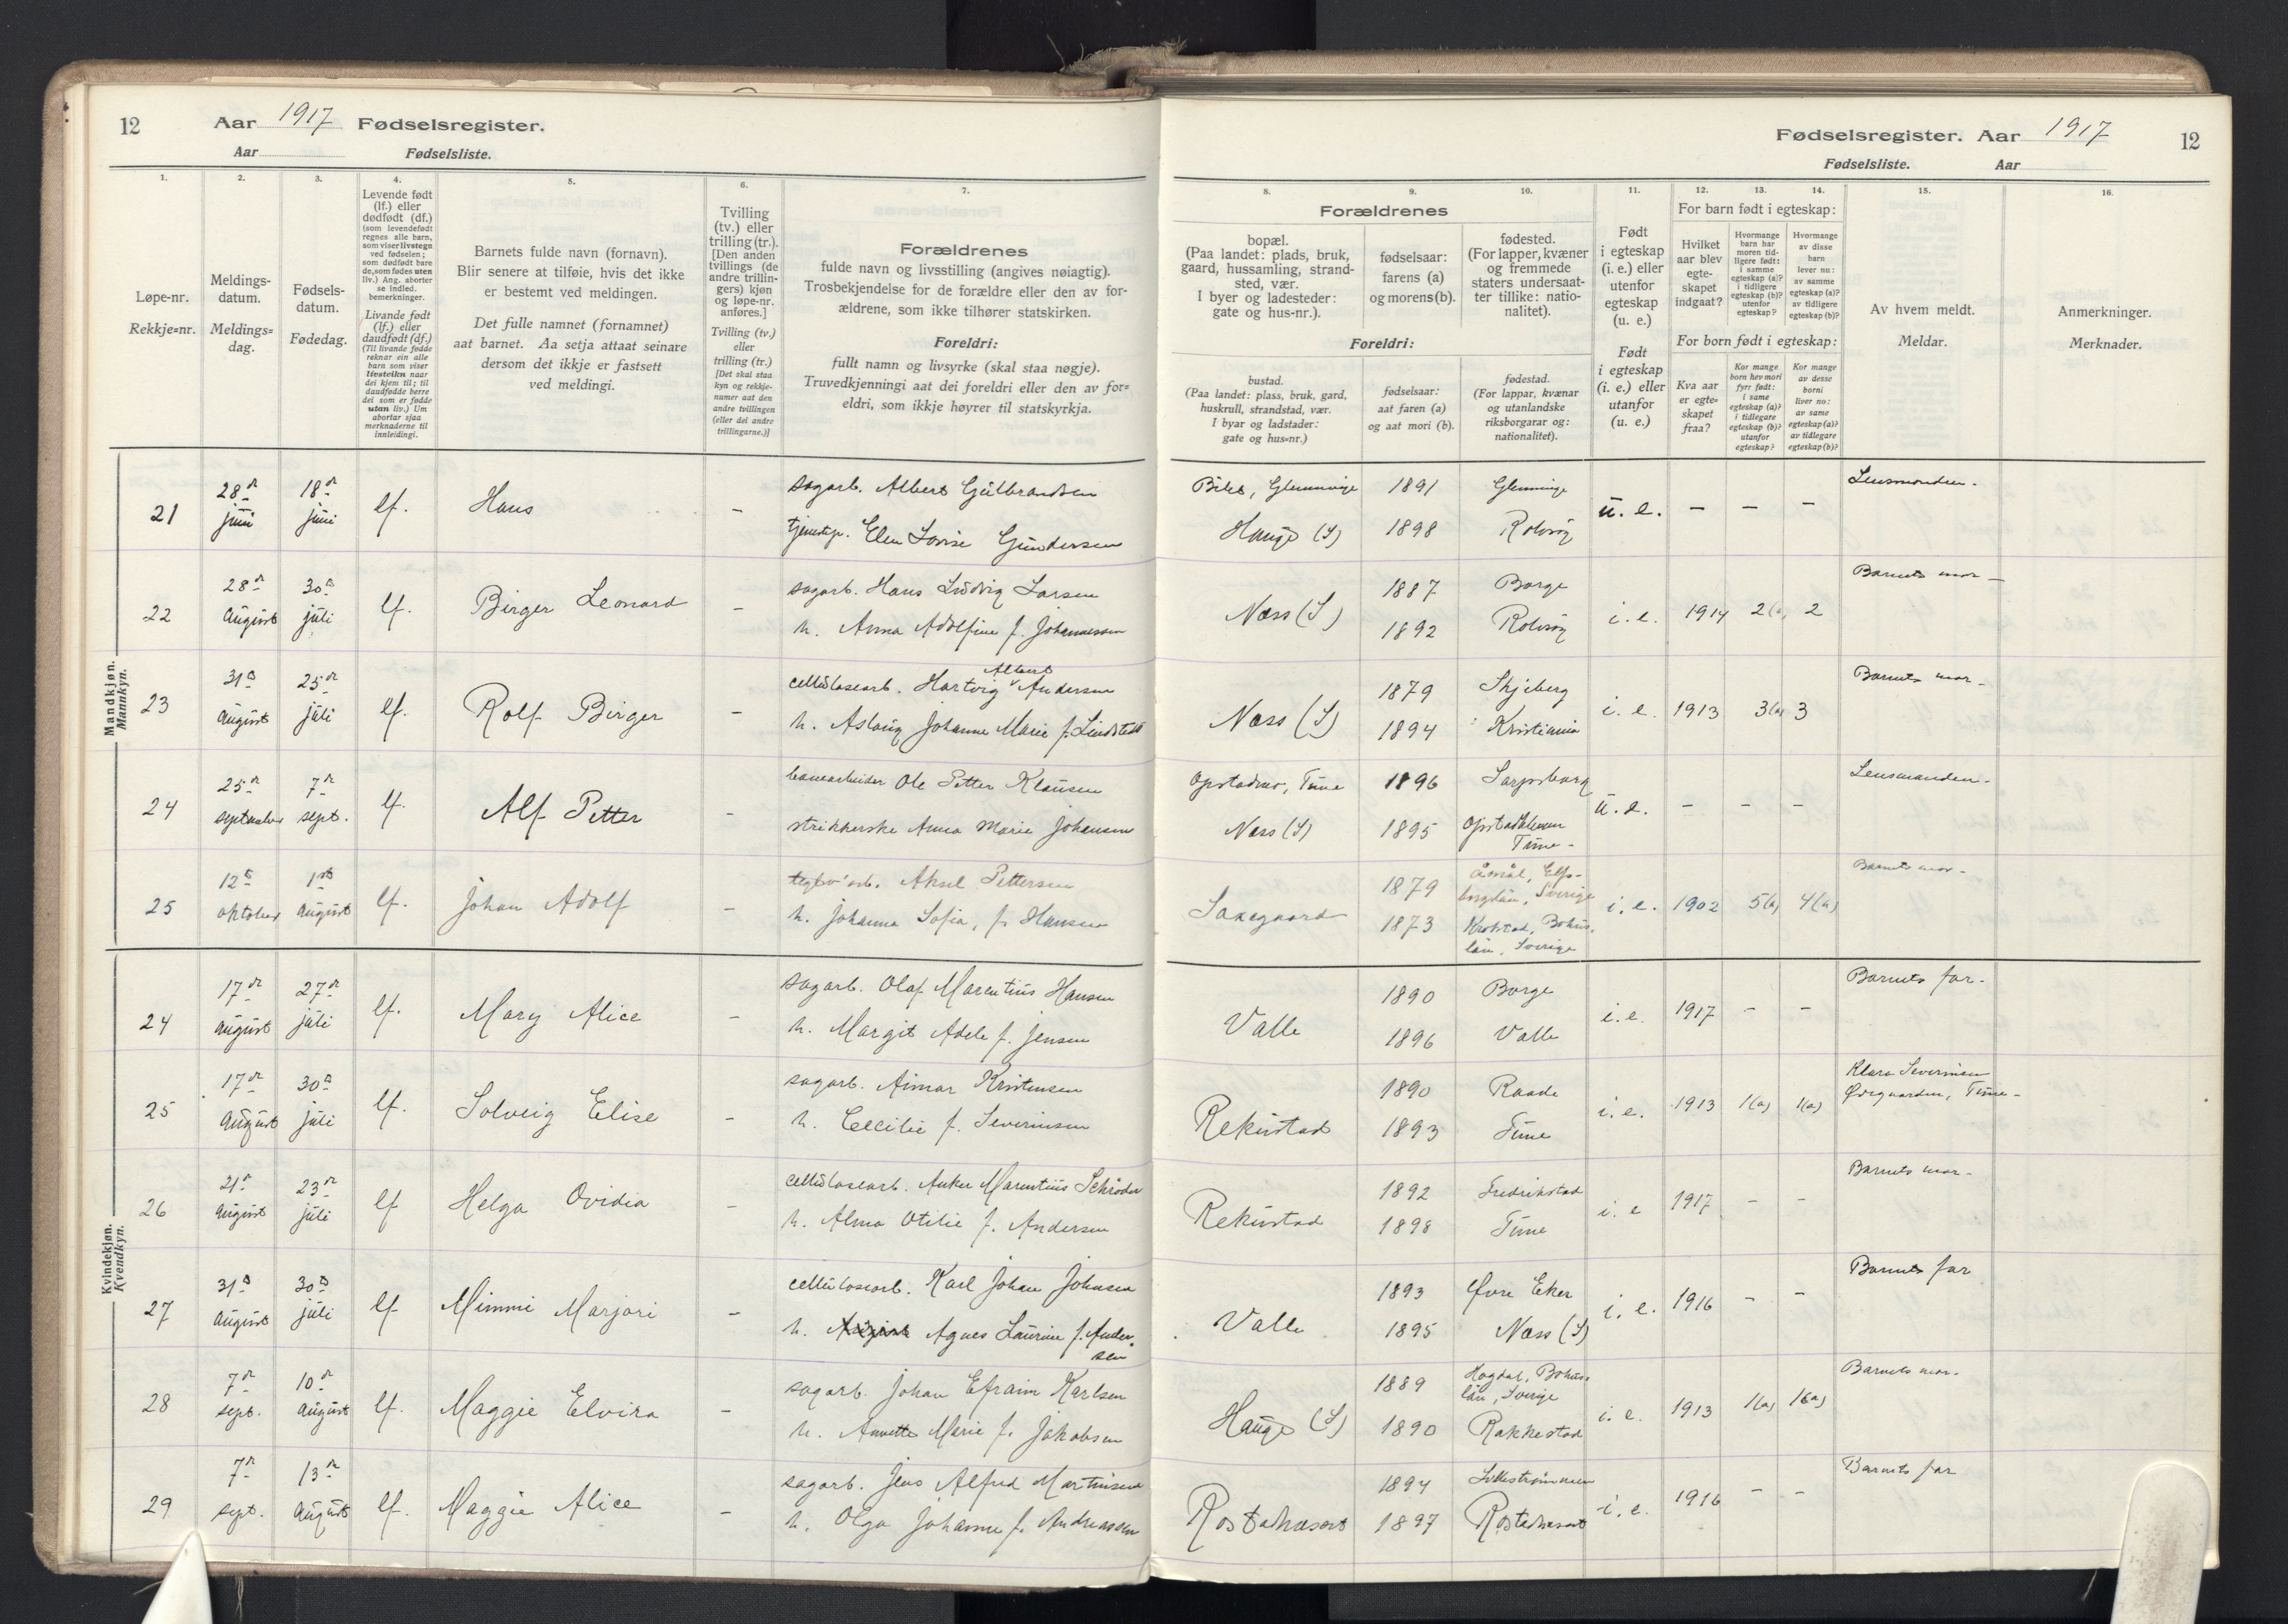 12
Aar 1917 Fødselsregister.
Aar Fødselsliste.
1.
Løpe-nr.
Rekkje=nr.
2.
Meldings-
datum.
Meldings=
dag.
3.
Fødsels-
datum.
Fødedag.
4.
Levende født
(lf.) eller
dødfødt (df.)
(som levendefødt
regnes alle barn,
som viser livstegn
ved fødselen;
som dødfødt bare
de, som fødes uten
liv.) Ang. aborter
se indled.
bemerkninger.
Livande født
(lf.) eller
daudfødt (df.)
(Til livande fødde
reknar ein alle
barn som viser
livsteikn naar
dei kjem til; til
daudfødde berre
dei som er fødde
utan liv.) Um
abortar sjaa
merknaderne til
innleidingi.
5.
Barnets fulde navn (fornavn).
Blir senere at tilføie, hvis det ikke
er bestemt ved meldingen.
Det fulle namnet (fornamnet)
aat barnet. Aa setja attaat seinare
dersom det ikkje er fastsett
ved meldingi.
6.
Tvilling
(tv.) eller
trilling (tr.).
[Den anden
tvillings (de
andre trillin-
gers) kjøn
og løpe-nr.
anføres.]
Tvilling (tv.)
eller
trilling (tr.)
[Det skal staa
kyn og rekkje-
numer aat den
andre tvillingen
(eller dei andre
trillingarne.)]
7.
Forældrenes
fulde navn og livsstilling (angives nøiagtig).
Trosbekjendelse for de forældre eller den av for-
ældrene, som ikke tilhører statskirken.
Foreldri:
fullt namn og livsyrke (skal staa nøgje).
Truvedkjenningi aat dei foreldri eller den av for=
eldri, som ikkje høyrer til statskyrkja.
Mandkjøn.
Mannkyn.
21 28de juni 18de juni lf. Hans –
sagarb. Albert Gulbrandsen
tjenestep. Elen Lovise Gundersen
22 28de august 30te juli lf. Birger Leonard –
sagarb. Hans Ludvig Larsen
h. Anna Adolfine f. Johannessen
23 31te august 25de juli lf. Rolf Birger –
Albert
cellulosearb. Hartvig Andersen
h. Aslaug Johanne Marie f. Lindstedt
24 25de september 7de sept. lf. Alf Petter –
banearbeider Ole Petter Klausen
strikkerske Anna Marie Johansen
25 12te oktober 1ste august lf. Johan Adolf –
teglv. arb. Aksel Pettersen
h. Johanna Sofia, f. Hansen
Kvindekjøn.
Kvendkyn.
24 17de august 27de juli lf. Mary Alice –
sagarb. Olaf Marentius Hansen
h. Margit Adele f. Jensen
25 17de august 30te juli lf. Solveig Elise –
sagarb. Aimar Kristensen
h. Cecilie f. Severinsen
26 21de august 23de juli lf Helga Ovidia –
cellulosearb. Anker Marentius Schrøder
h. Alma Otilie f. Andersen
27 31te august 30te juli lf Mimmi Marjori –
cellulosearb. Karl Johan Johnsen
h. Agnes Laurine f. Ander-
sen
28 7de sept. 10de august lf. Maggie Elvira –
sagarb. Johan Efraim Karlsen
h. Annette Marie f. Jakobsen
29 7de sept. 13de august lf. Maggie Alice –
sagarb. Jens Alfred Martinsen
h. Olga Johanne f. Andreassen
Fødselsregister. Aar 1917 12
Fødselsliste. Aar
8.
Forældrenes
bopæl.
(Paa landet: plads, bruk,
gaard, hussamling, strand-
sted, vær.
I byer og ladesteder:
gate og hus-nr.).
Foreldri:
bustad.
(Paa landet: plass, bruk, gard,
huskrull, strandstad, vær.
I byar og ladstader:
gate og hus=nr.)
9.
fødselsaar:
farens (a)
og morens (b).
fødselsaar:
aat faren (a)
og aat mori (b).
10.
fødested.
(For lapper, kvæner
og fremmede
staters undersaat-
ter tillike: natio-
nalitet).
fødestad.
(For lappar, kvænar
og utanlandske
riksborgarar og:
nationalitet).
11.
Født
i egteskap
(i. e.) eller
utenfor
egteskap
(u. e.)
Født
i egteskap
(i. e.) eller
utanfor
(u. e.)
12. 13. 14.
For barn født i egteskap:
Hvilket
aar blev
egte-
skapet
indgaat?
Hvormange
barn har
moren tid-
ligere født:
i samme
egteskap (a)?
i tidligere
egteskap (b)?
utenfor
egteskap?
Hvormange
av disse
barn
lever nu:
av samme
egteskap (a)?
av tidligere
egteskap (b)?
For born født i egteskap:
Kva aar
er egte=
skapet
fraa?
Kor mange
born hev mori
fyrr født:
i same
egteskap (a)?
i tidlegare
egteskap (b)?
utanfor
egteskap?
Kor mange
av desse
borni
liver no:
av same
egteskap (a)?
av tidlegare
egteskap (b)?
15.
Av hvem meldt.
Meldar.
16.
Anmerkninger.
Merknader.
Glemminge 1891 Glemminge u. e. – – – Lensmanden.
Hauge (S) 1898 Rolvsøy
Næss (S) 1887 Borge i. e. 1914 2(a) 2 Barnets mor –
1892 Rolvsøy
Næss (S) 1879 Skjeberg i. e. 1913 3(a) 3 Barnets mor –
1894 Kristiania
Opstadmo, Tune 1896 Sarpsborg u. e. – – – Lensmanden.
Næss (S) 1895 Tune –
Saxegaard 1879 Åmål, Elfs-
borglän, Sverige i. e. 1902 5(a) 4(a) Barnets mor –
1873 Krokstad, Bohus-
län, Sverige
Valle 1890 Borge i. e. 1917 – – Barnets far.
1896 Valle
Rekustad 1890 Raade i. e. 1913 1(a) 1(a) Klara Severinsen
Ørsgaarden, Tune –
1893 Tune
Rekustad 1892 Fredrikstad i. e 1917 – – Barnets mor –
1898 Tune
Valle 1893 Øvre Eker i. e. 1916 – – Barnets far
1895 Næss (S)
Hauge (S) 1889 Hogdal, Bohus-
län, Sverige i. e. 1913 1(a) 1(a) Barnets mor.
1890 Rakkestad
Rostadnæset 1894 Lillestrømmen i. e. 1916 – – Barnets far
1897 Rostadnæset